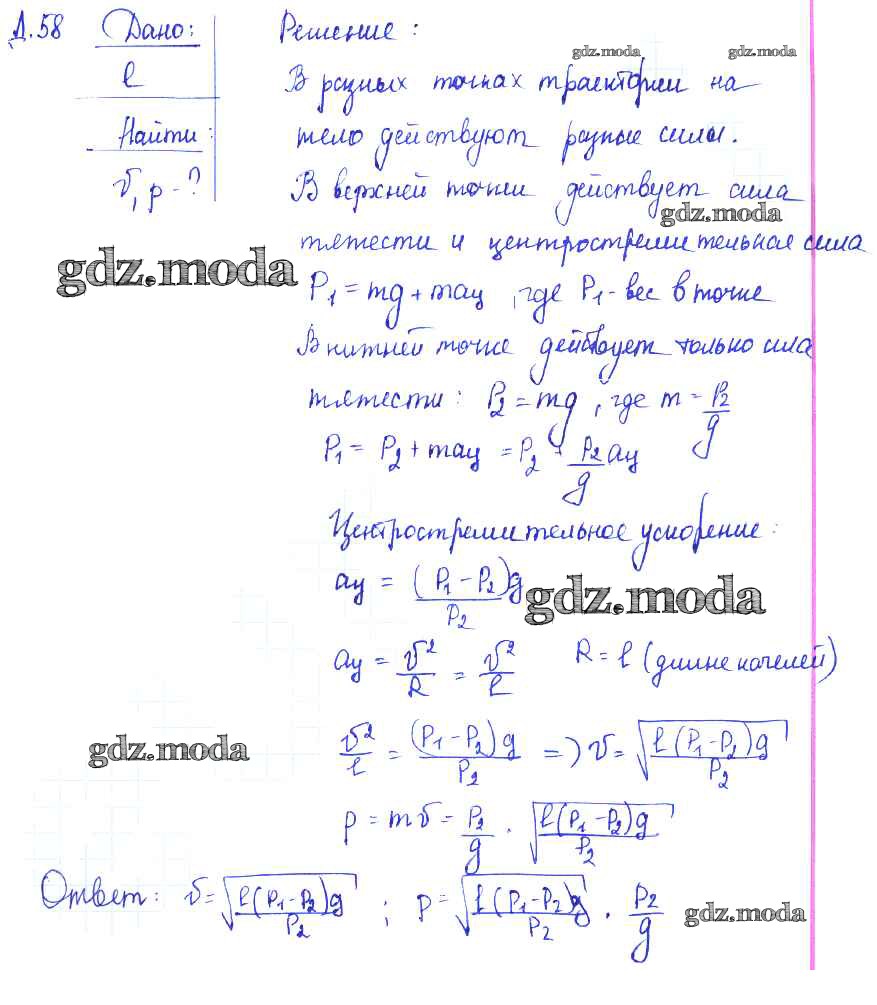 Д.58 Дано: Решение:
gdz.moda gdz.moda
l В разных точках траектории на
Найти: тело действуют разные силы.
v, p - ? В верхней точки действует сила
gdz.moda
тяжести и центростремительная сила
gdz.moda
P₁ = mg + maц, где P₁ - вес в точке
В нижней точке действует только сила
тяжести: P₂ = mg, где m = P₂/g
P₁ = P₂ + maц = P₂ + P₂/g aц
Центростремительное ускорение:
aц = (P₁ - P₂)g/P₂
gdz.moda
aц = v²/R = v²/l R = l (длине качелей)
v²/l = (P₁ - P₂)g/P₂ => v = √(l(P₁ - P₂)g/P₂)
gdz.moda
p = mv = P₂/g · √(l(P₁ - P₂)g/P₂)
Ответ: v = √(l(P₁ - P₂)g/P₂) ; p = √(l(P₁ - P₂)g/P₂) · P₂/g
gdz.moda